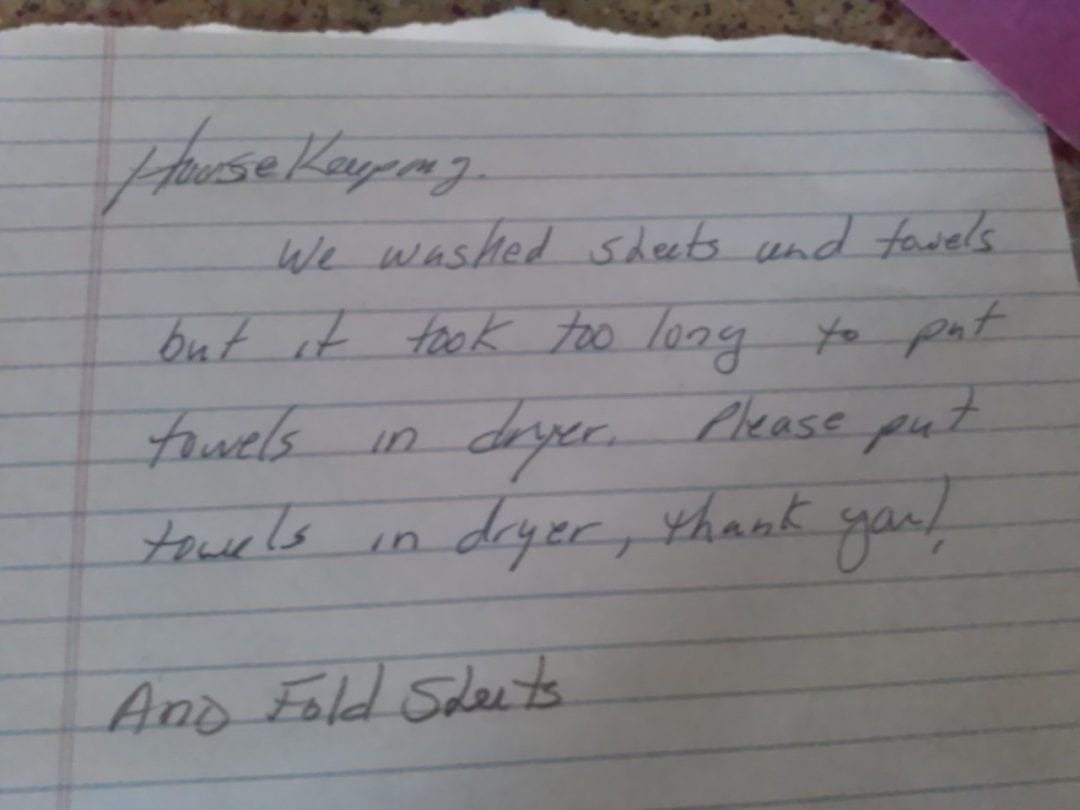 HouseKeeping.
We washed sheets and towels
but it took too long to put
towels in dryer. Please put
towels in dryer, thank you!
And Fold Sheets